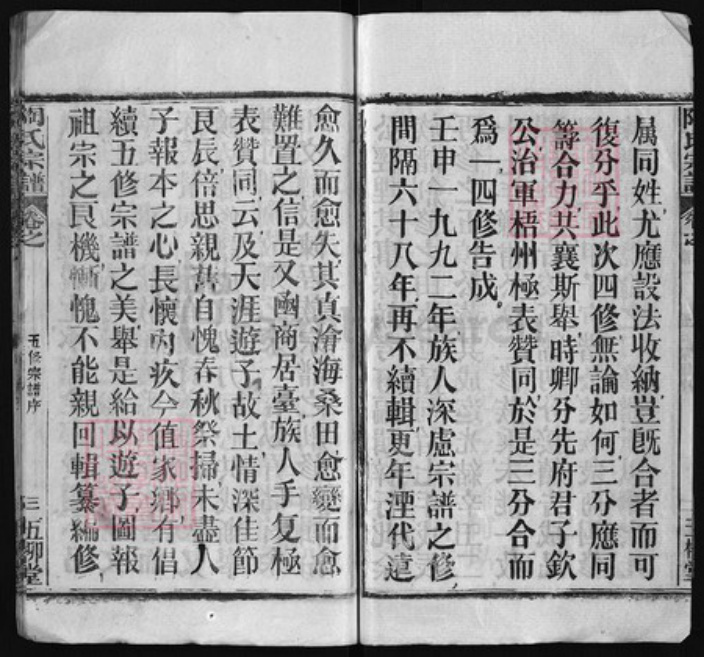 属同姓尤應設法收納豈既合者而可
復分乎此次四修無論如何三分應同
籌合力共襄斯舉時卿分先府君子欽
公治軍梧州極表贊同於是三分合而
爲一四修告成
壬申一九九二年族人深慮宗譜之修
間隔六十八年再不續輯更年湮代遠
愈久而愈失其真滄海桑田愈變而愈
難置之信是又函商居臺族人手复極
表贊同云及天涯遊子故土情深佳節
良辰倍思親舊自愧春秋祭掃未盡人
子報本之心長懷内疚今值家鄉有倡
續五修宗譜之美舉是給以遊子圖報
祖宗之良機慚愧不能親回輯纂編修
陶氏宗譜
卷之
五修宗譜序
三
五柳堂